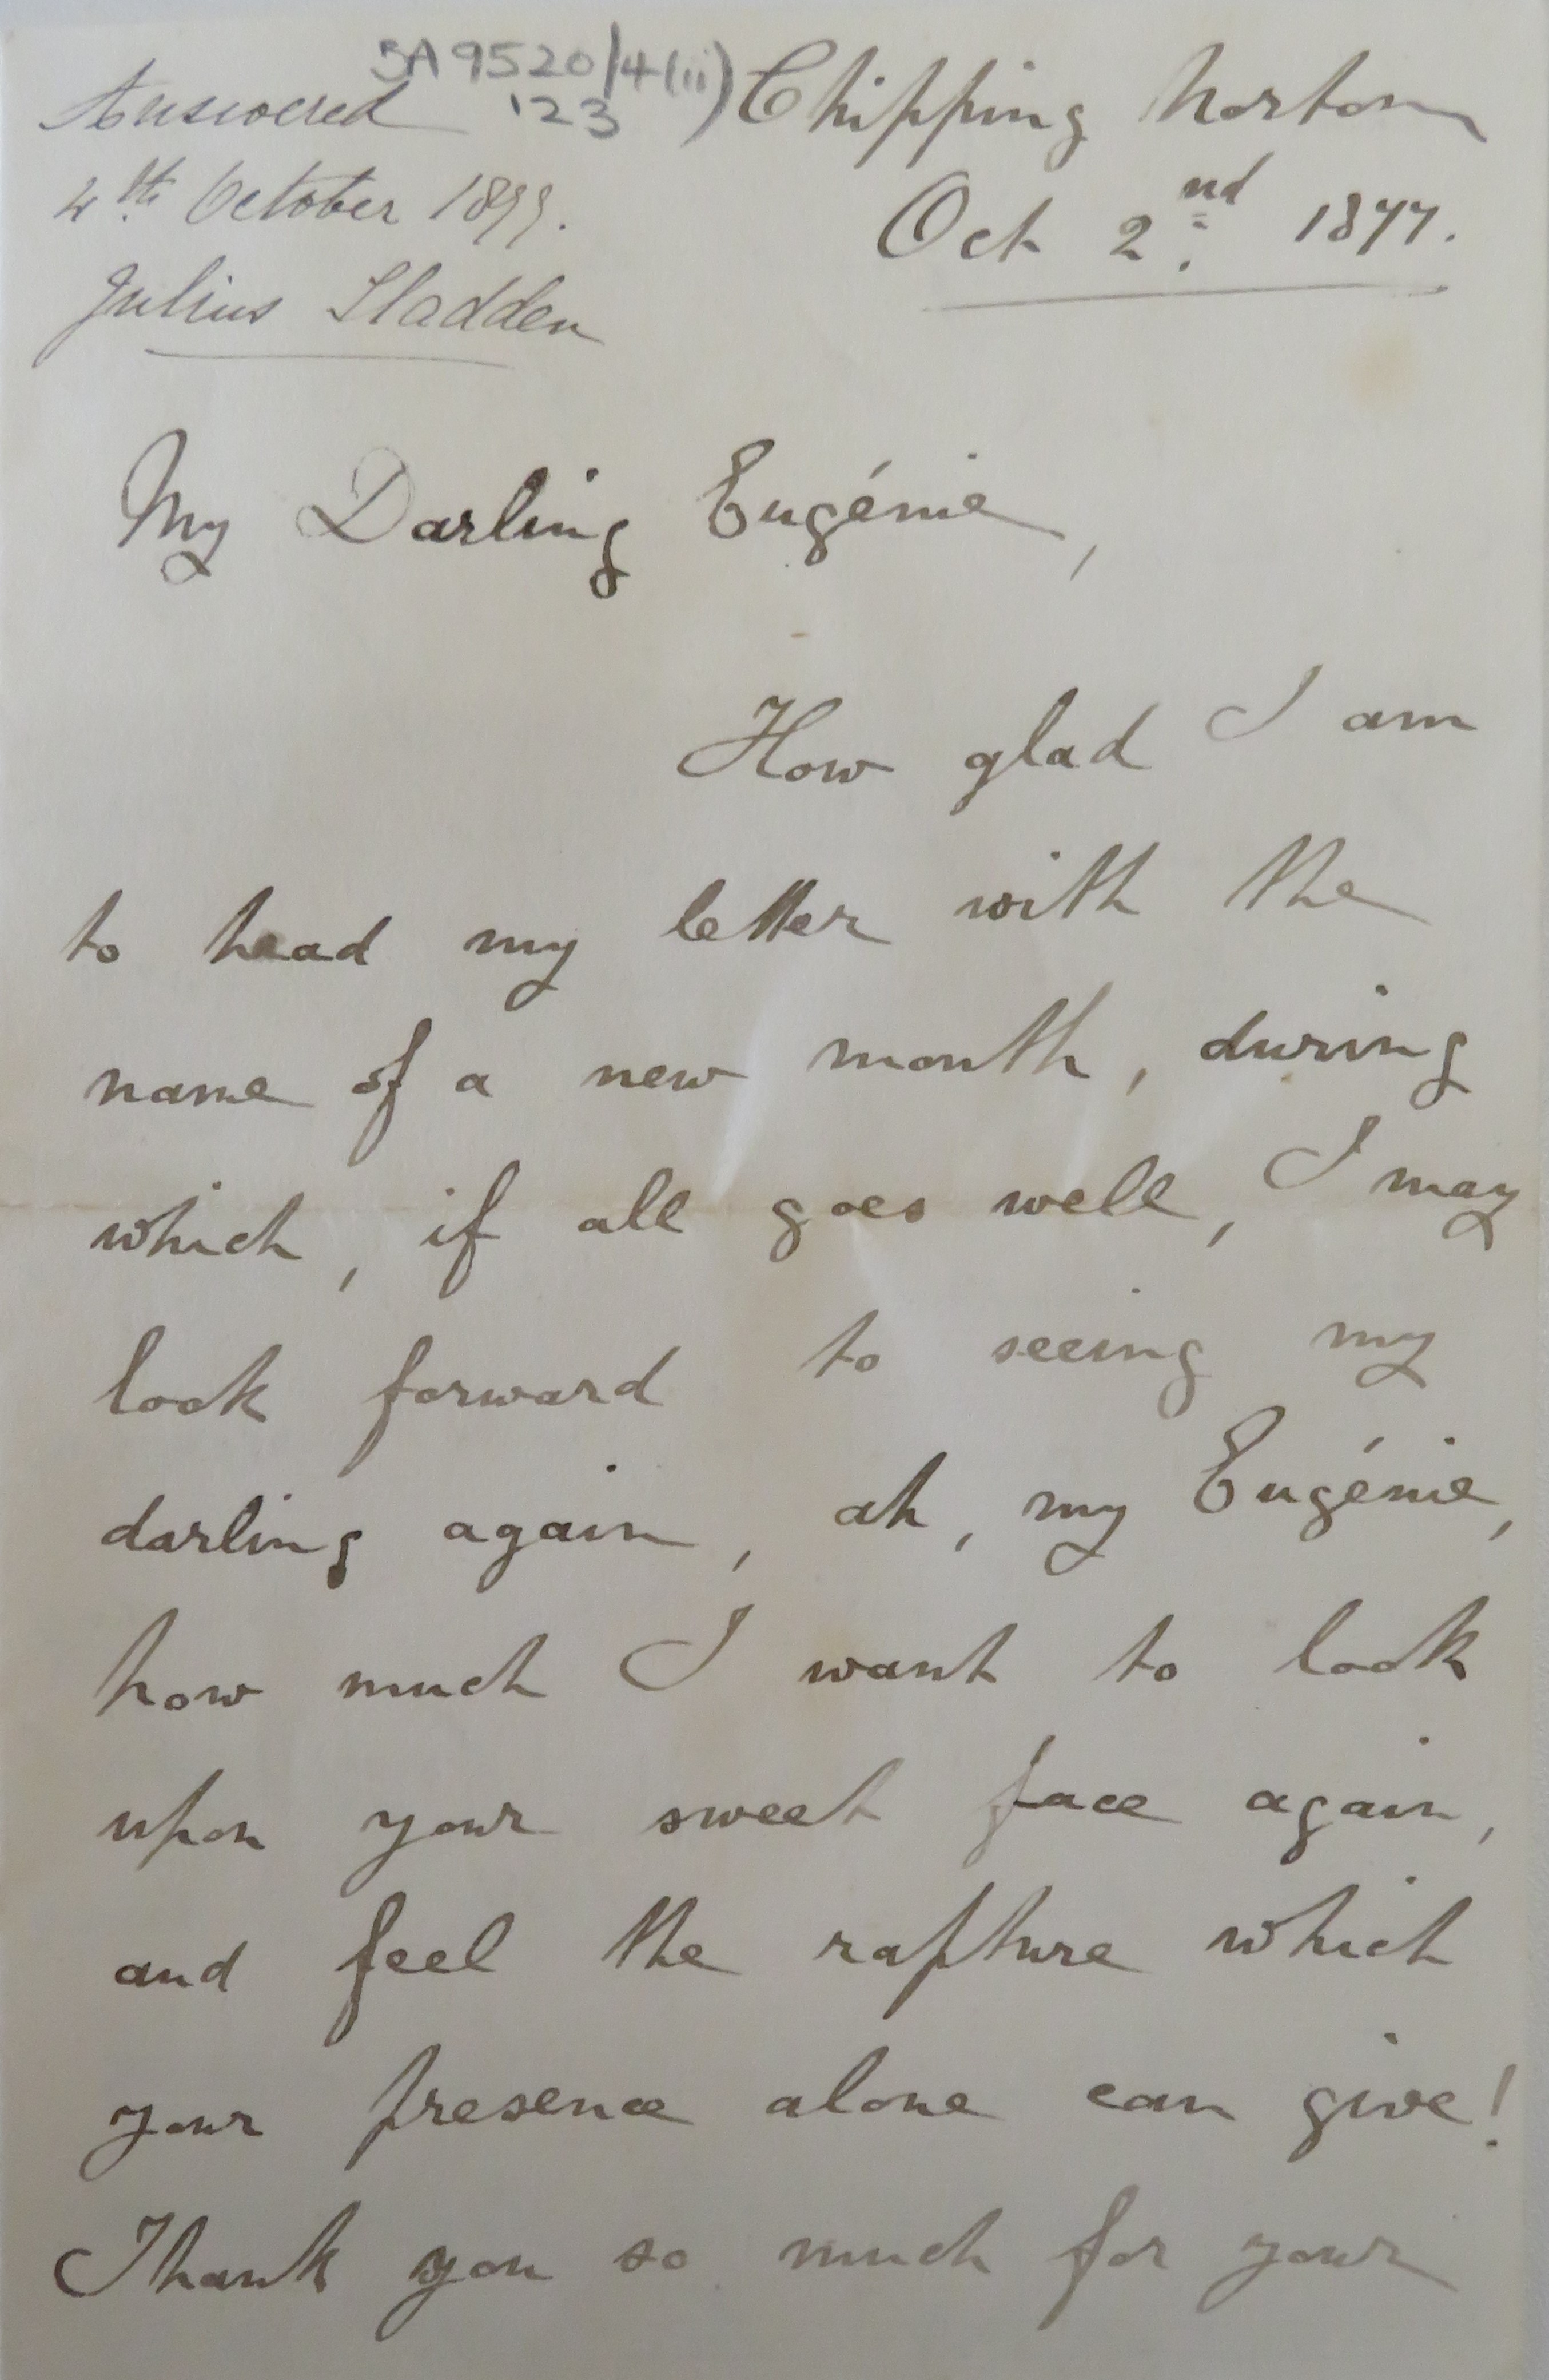 BA9520/4(ii)
123
Answered
4th October 1877.
Julius Sladden
Chipping Norton
Oct 2nd 1877.
My Darling Eugénie,
How glad I am
to head my letter with the
name of a new month, during
which, if all goes well, I may
look forward to seeing my
darling again, ah, my Eugénie,
how much I want to look
upon your sweet face again,
and feel the rapture which
your presence alone can give!
Thank you so much for your